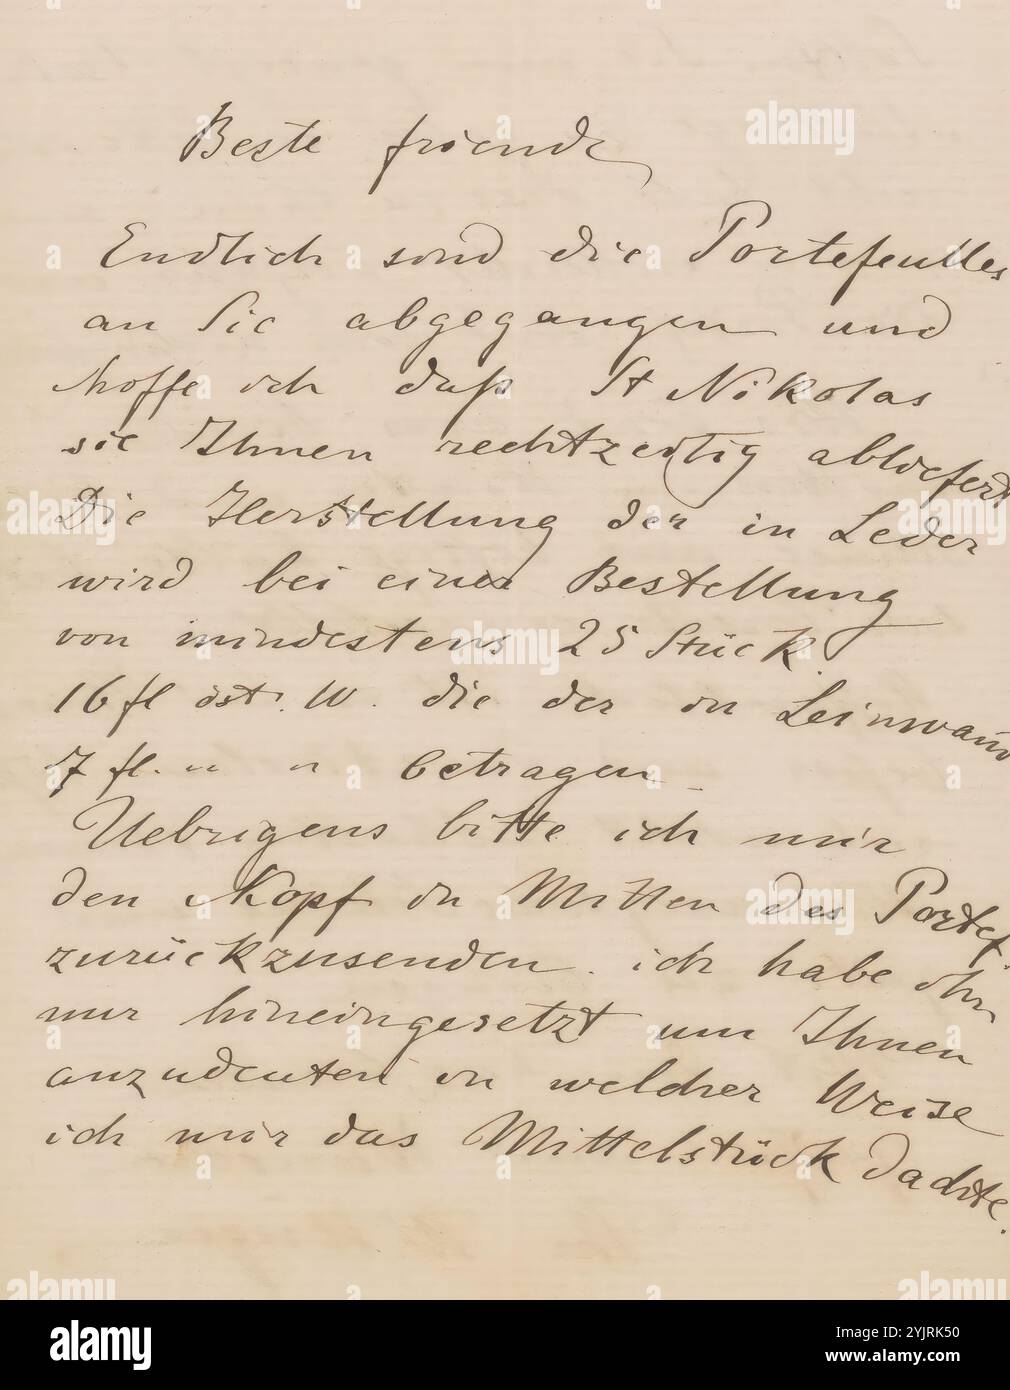 Beste friende
Endlich sind die Portefeulles
an Sie abgegangen und
hoffe ich daß St Nikolas
sie Ihnen rechtzeitig abliefert
Die Herstellung der in Leder
wird bei einer Bestellung
von mindestens 25 Stück
16 fl öst. W. die der in Leinwand
7 fl. " " betragen
Uebrigens bitte ich mir
den Kopf in Mitten des Portef
zurückzusenden. ich habe ihn
nur hineingesetzt um Ihnen
anzudeuten in welcher Weise
ich mir das Mittelstück dachte.
alamy
Image ID: 2YJRK50
www.alamy.com